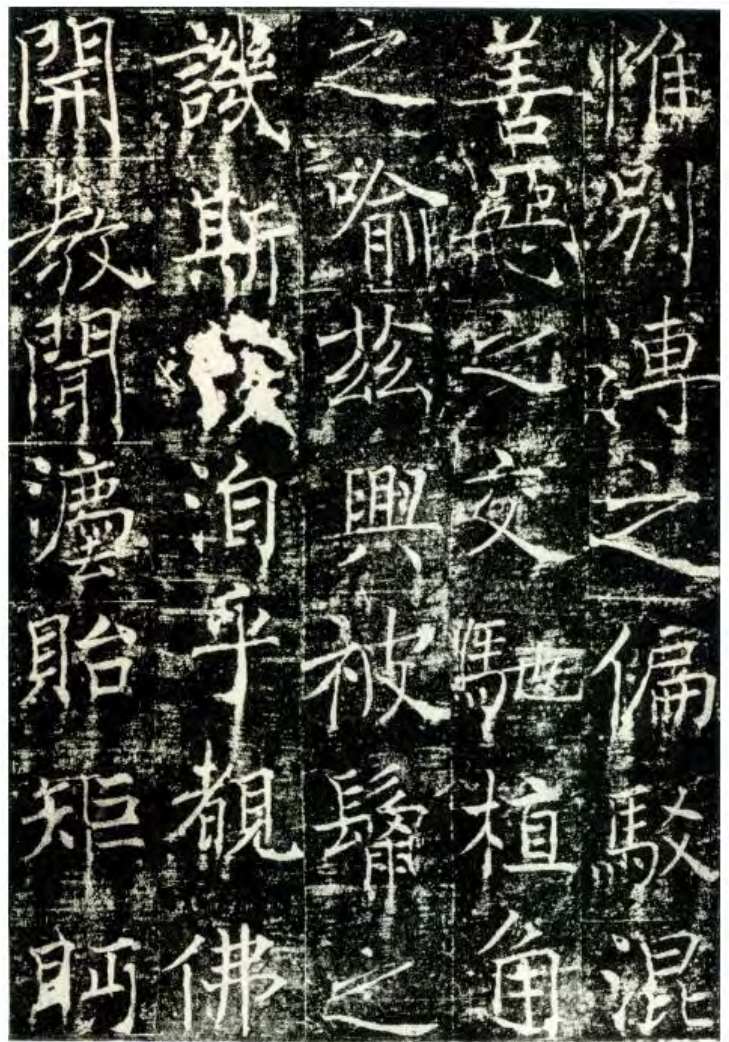 惟別之偏駮混
善惡之交馳植角
之喻茲興被之
譏斯洎乎覩佛
開教聞灋貽矩眄